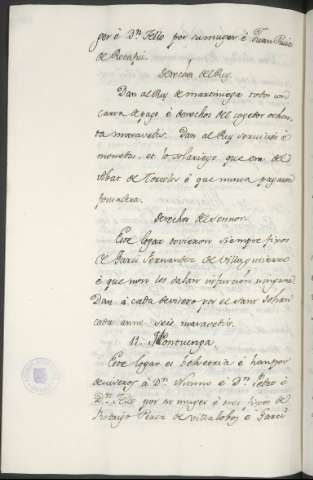 gor é Dn. Tello por su muger é Juan Ruiz
de Rocafui.
Derechos del Rey.
Dan al Rey de martiniega todos con
carta de pago é derechos del cogetor ochen-
ta maravedis. Dan al Rey servicios é
monedas, et lo solariego que era del
Abat de é que nunca pagaron
fonsadera.
Derechos del Sennor.
Este logar tovieron siempre fijos
de Garci Fernandez de Villaguierno
é que non les daban infurcion ninguna
Dan á cada devisero por el Sant Johan
cada anno seis maravedis.
12. Montuenga.
Este logar es Behetria é han por
deviseros á Dn. Nunno é Dn. Pedro é
Dn. Tello por su muger é tres fijos de
Rodrigo Perez de Villalobos é Garci